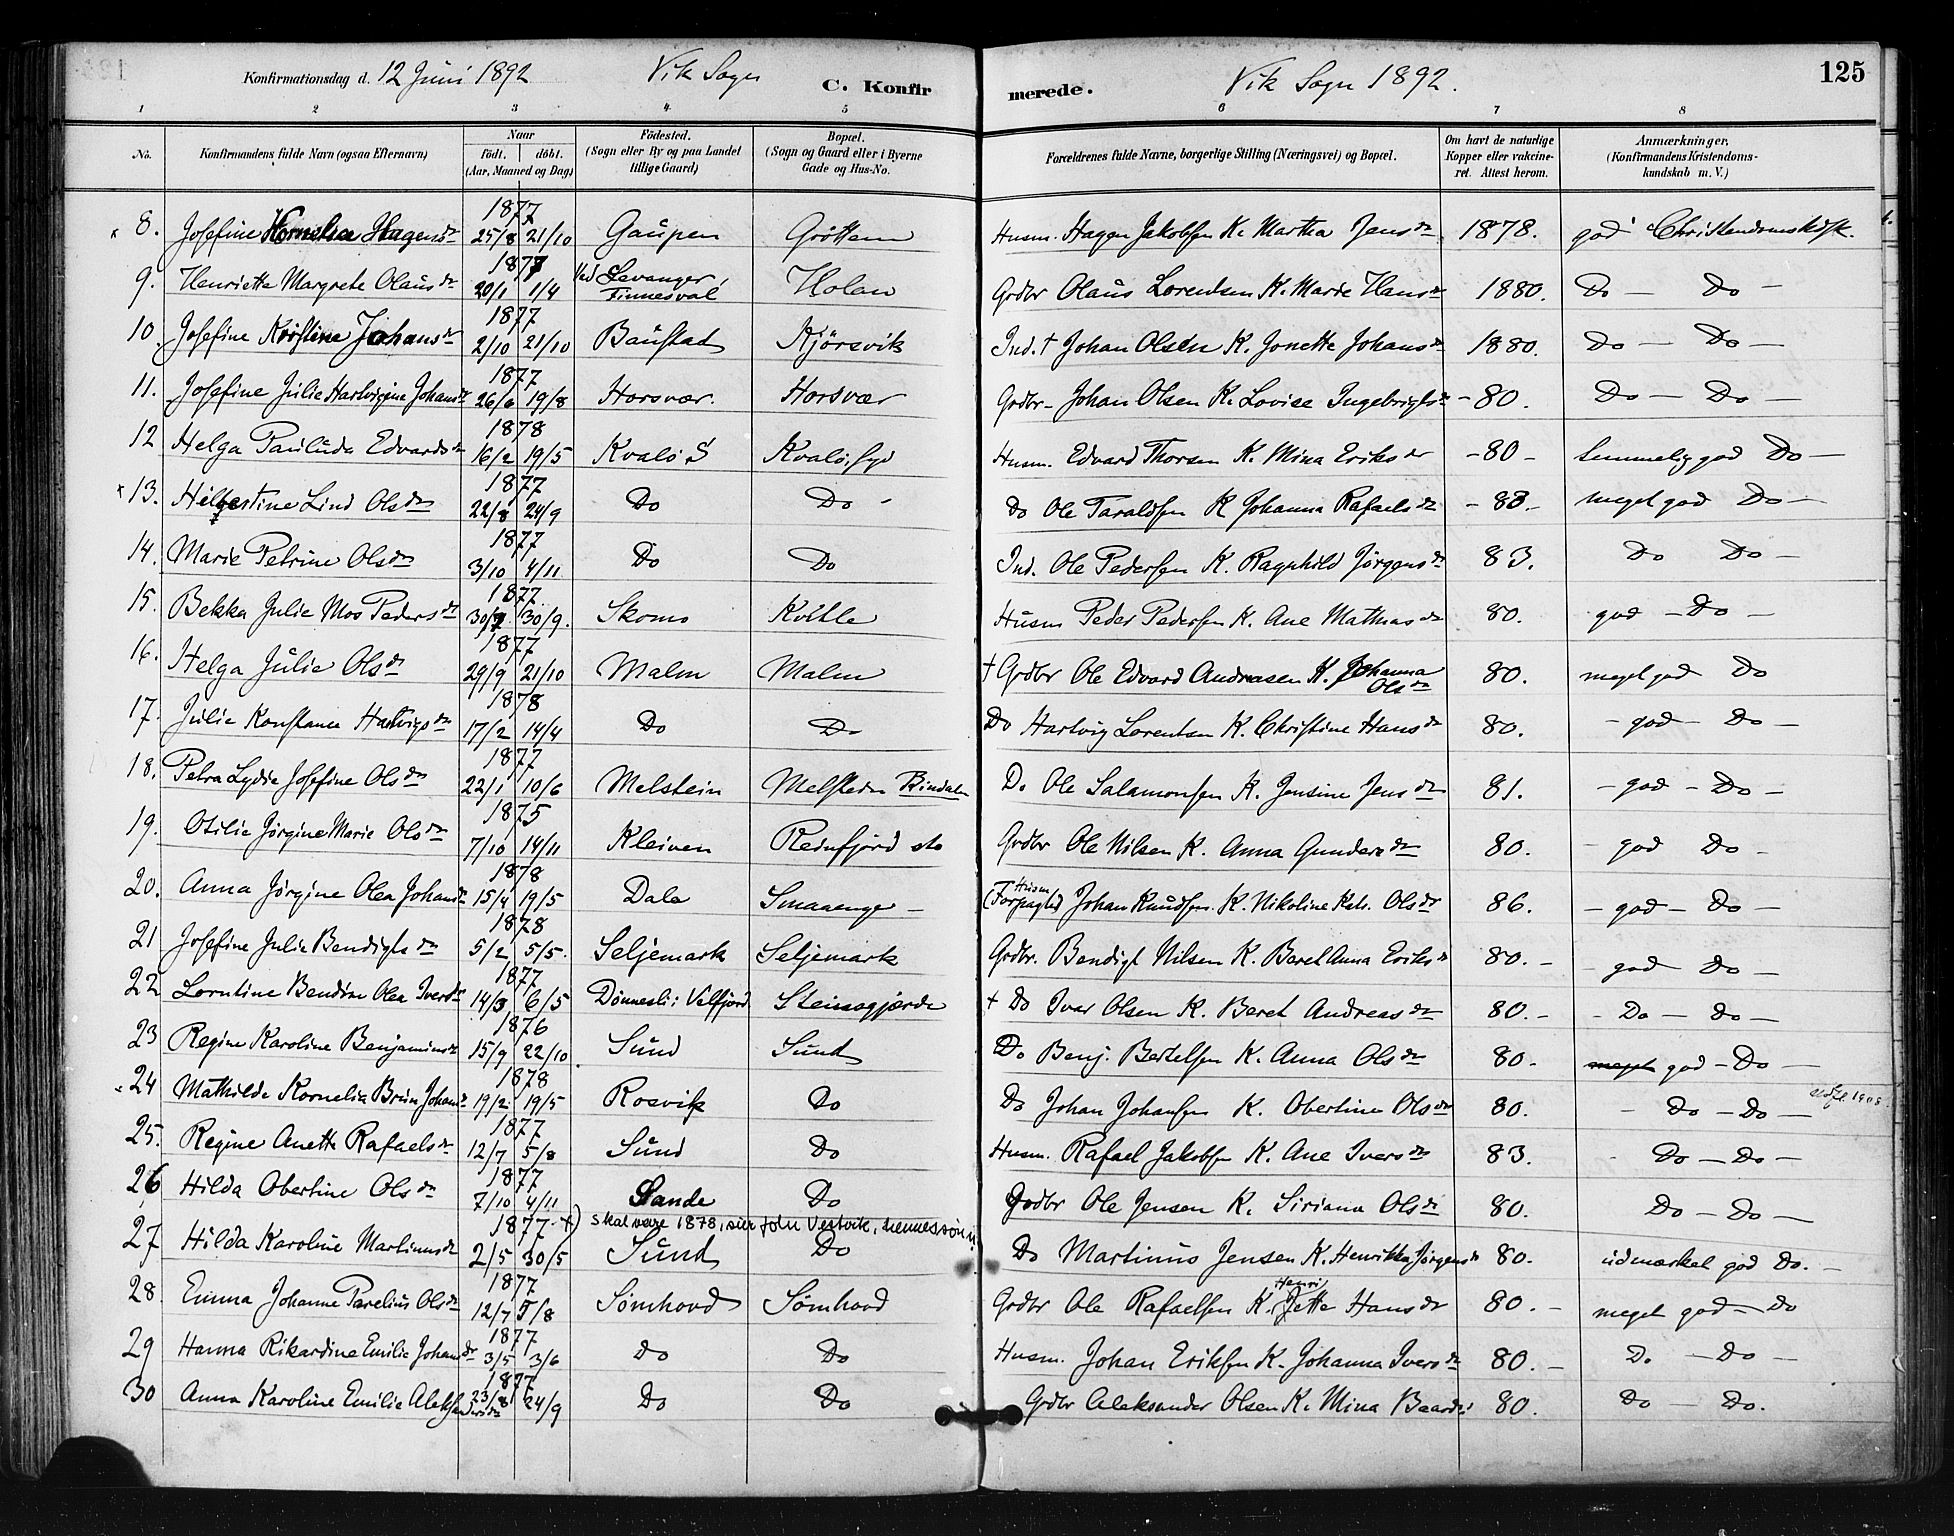 Konfirmationsdag d. 12 Juni 1892 Vik Sogn C. Konfirmerede. Vik Sogn 1892. 125
1 2 3 4 5 6 7 8
No. Konfirmandens fulde Navn (ogsaa Efternavn) Naar Födt. döbt. (Aar, Maaned og Dag) Födested. (Sogn eller By og paa Landet tillige Gaard) Bopæl. (Sogn og Gaard eller i Byerne Gade og Hus-No. Forældrenes fulde Navne, borgerlige Stilling (Næringsvei) og Bopæl. Om havt de naturlige Kopper eller vakcineret. Attest herom. Anmærkninger. (Konfirmandens Kristendomskundskab m. V.)
x 8. Josefine Kornelia Hagensdr 1877 25/8 21/10 Gaupen Gröttem Husm. Hagen Jakobsen K. Martha Jensdr 1878. god Christendomskdsk.
9. Henriette Margrete Olausdr 1877 20/1 1/4 Ved Levanger, Finnesval Holan Grdbr Olaus Lorentsen K. Marie Hansdr 1880. Do — Do —
10. Josefine Kristine Johansdr 1877 2/10 21/10 Baustad Kjörsvik Ind. † Johan Olsen K. Jonette Johansdr 1880. Do — Do —
11. Josefine Julie Hartvigine Johansdr 1877 26/6 19/8 Horsvær. Horsvær Grdbr. Johan Olsen K. Lovise Ingebrigtsdr - 80. Do — Do —
12 Helga Pauluda Edvardsdr 1878 16/2 19/5 Kvalö S Kvalö, syd Husm. Edvard Thorsen K. Mina Eriksdr - 80 - temmelig god Do —
x 13. Hilbertine Lind Olsdr 1877 22/8 24/9 Do Do Do Ole Taraldsen K Johanna Rafaelsdr - 83. - meget god Do —
14. Marie Petrine Olsdr 1877 3/10 4/11 Do Do Ind. Ole Pedersen K. Ragnhild Jörgensdr 83. Do Do —
15. Bekka Julie Moo Pedersdr 1877 30/7 30/9. Skomo Kvitle Husm Peder Pedersen K. Ane Mathiasdr 80. god - Do —
16. Helga Julie Olsdr 1877 29/9 21/10 Malm Malm † Grdbr Ole Edvard Andreasen K. Johanna Olsdr 80. meget god Do
17. Julie Konstance Hartvigsdr 1878 17/2 14/4 Do Do Do Hartvig Lorentsen K. Christine Hansdr 80. - god - Do —
18. Petra Lydie Josefine Olsdr 1877 22/1 10/6 Melstein Melsteen Bindalen Do Ole Salamonsen K. Jensine Jensdr 81. - god - Do —
19. Otilie Jörgine Marie Olsdr 1875 7/10 14/11 Kleiven Reinfjord sto Grdbr Ole Nilsen K. Anna Gundersdr 80. - god Do -
20. Anna Jörgine Olea Johansdr 1878 15/4 19/5 Dale Smaaenge - (Husm Forpagted Johan Knudsen K. Nikoline Kat. Olsdr 86. - god - Do —
21 Josefine Julie Bendigtsdr 1878 5/2 5/5. Seljemark Seljemark Grdbr. Bendigt Nilsen K. Beret Anna Eriksdr 80. - - god Do —
22 Lorntine Bendine Olea Iversdr 1877 14/3 6/5 Dönnesli i Velfjord Steinsgjærde † Do Ivar Olsen K. Beret Andreasdr 80. - - Do — Do —
23 Regine Karoline Benjaminsdr 1876 15/9 22/10 Sund Sund Do Benj. Bertelsen K. Anna Olsdr 80. - meget god - Do —
24 Mathilde Kornelia Brun Johansdr 1878 19/2 19/5 Rosvik Do Do Johan Johansen K. Obertine Olsdr 80. - Do - Do — 1908.
25. Regine Anette Rafaelsdr 1877 12/7 5/8 Sund Do Husm. Rafael Jakobsen K. Ane Iversdr 83. Do — Do —
26 Hilda Obertine Olsdr 1877 7/10 4/11 Sande Do Grdbr Ole Jensen K. Siriana Olsdr 80. Do — Do —
x) skal være 1878, sier John Vestvik, hennes sönn.
27 Hilda Karoline Martinusdr 1877 2/5 30/5 Sund Do Do Martinus Jensen K. Henrikka Jörgensdr 80. udmærket god Do. —
28. Emma Johanne Parelius Olsdr 1877 12/7 5/8 Sömhovd Sömhovd Grdbr Ole Rafaelsen K. Henrijette Hansdr 80. - meget god - Do
29 Hanna Rikardine Emilie Johansdr 1877 3/5 3/6 Do Do Husm. Johan Eriksen K. Johanna Iversdr 80. - Do — Do —
30 Anna Karoline Emilie Aleksandersdr 1877 23/8 24/9 Do Do Grdbr Aleksander Olsen K. Mina Baardsdr 80. Do — Do.